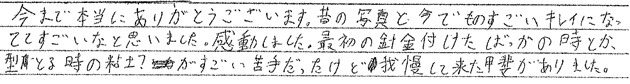 今まで本当にありがとうございます。昔の写真と今でものすごいキレイになっ
ててすごいなと思いました。感動しました。最初の針金付けたばっかの時とか、
型とる時の粘土?がすごい苦手だったけど我慢して来た甲斐がありました。